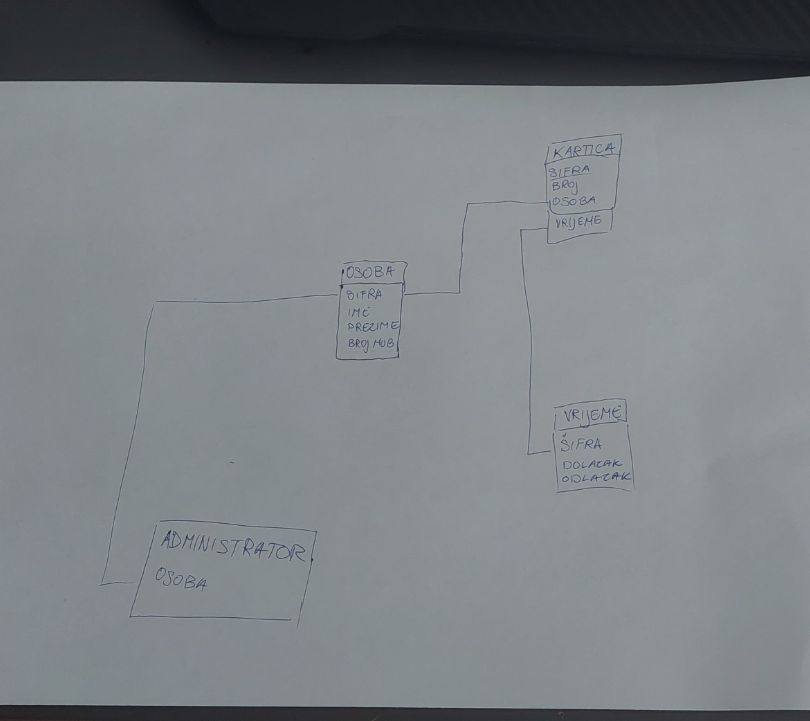 KARTICA
ŠIFRA
BROJ
OSOBA
VRIJEME
OSOBA
ŠIFRA
IME
PREZIME
BROJ MOB
VRIJEME
ŠIFRA
DOLAZAK
ODLAZAK
ADMINISTRATOR
OSOBA